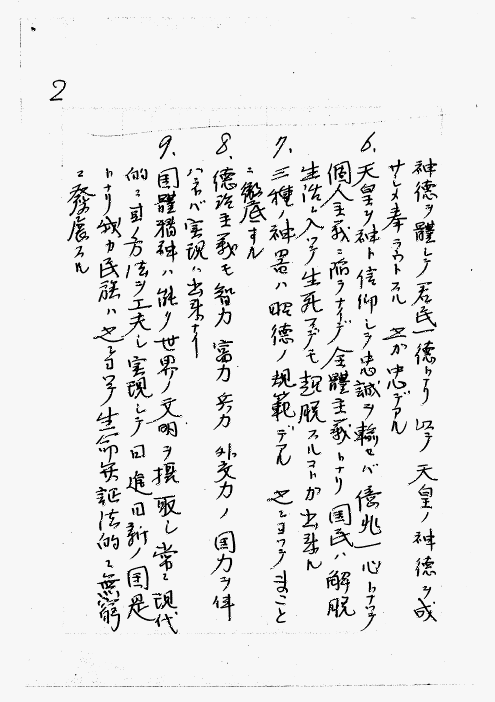 2
神德ヲ體シテ君民一德トナリ以テ天皇ノ神德ヲ成
サシメ奉ラウトスル 之カ忠デアル
6. 天皇ヲ神ト信仰シテ忠誠ヲ輸セバ億兆一心トナッテ
個人主義ニ陷ラナイデ全體主義トナリ国民ハ解脱
生活ニ入ッテ生死マデモ超脱スルコトガ出來ル
7. 三種ノ神器ハ明德ノ規範デアル 之ニヨッテまこと
ニ徹底スル
8. 德治主義モ智力富力兵力外交力ノ国力ヲ伴
ハネバ実現ハ出來ナイ
9. 国體精神ハ能ク世界ノ文明ヲ攝取シ常ニ現代
的ニ其ノ方法ヲ工夫シ実現シテ日進日新ノ国是
トナリ我カ民族ハ之ニヨッテ生命弁証法的ニ無窮
ニ發展スル